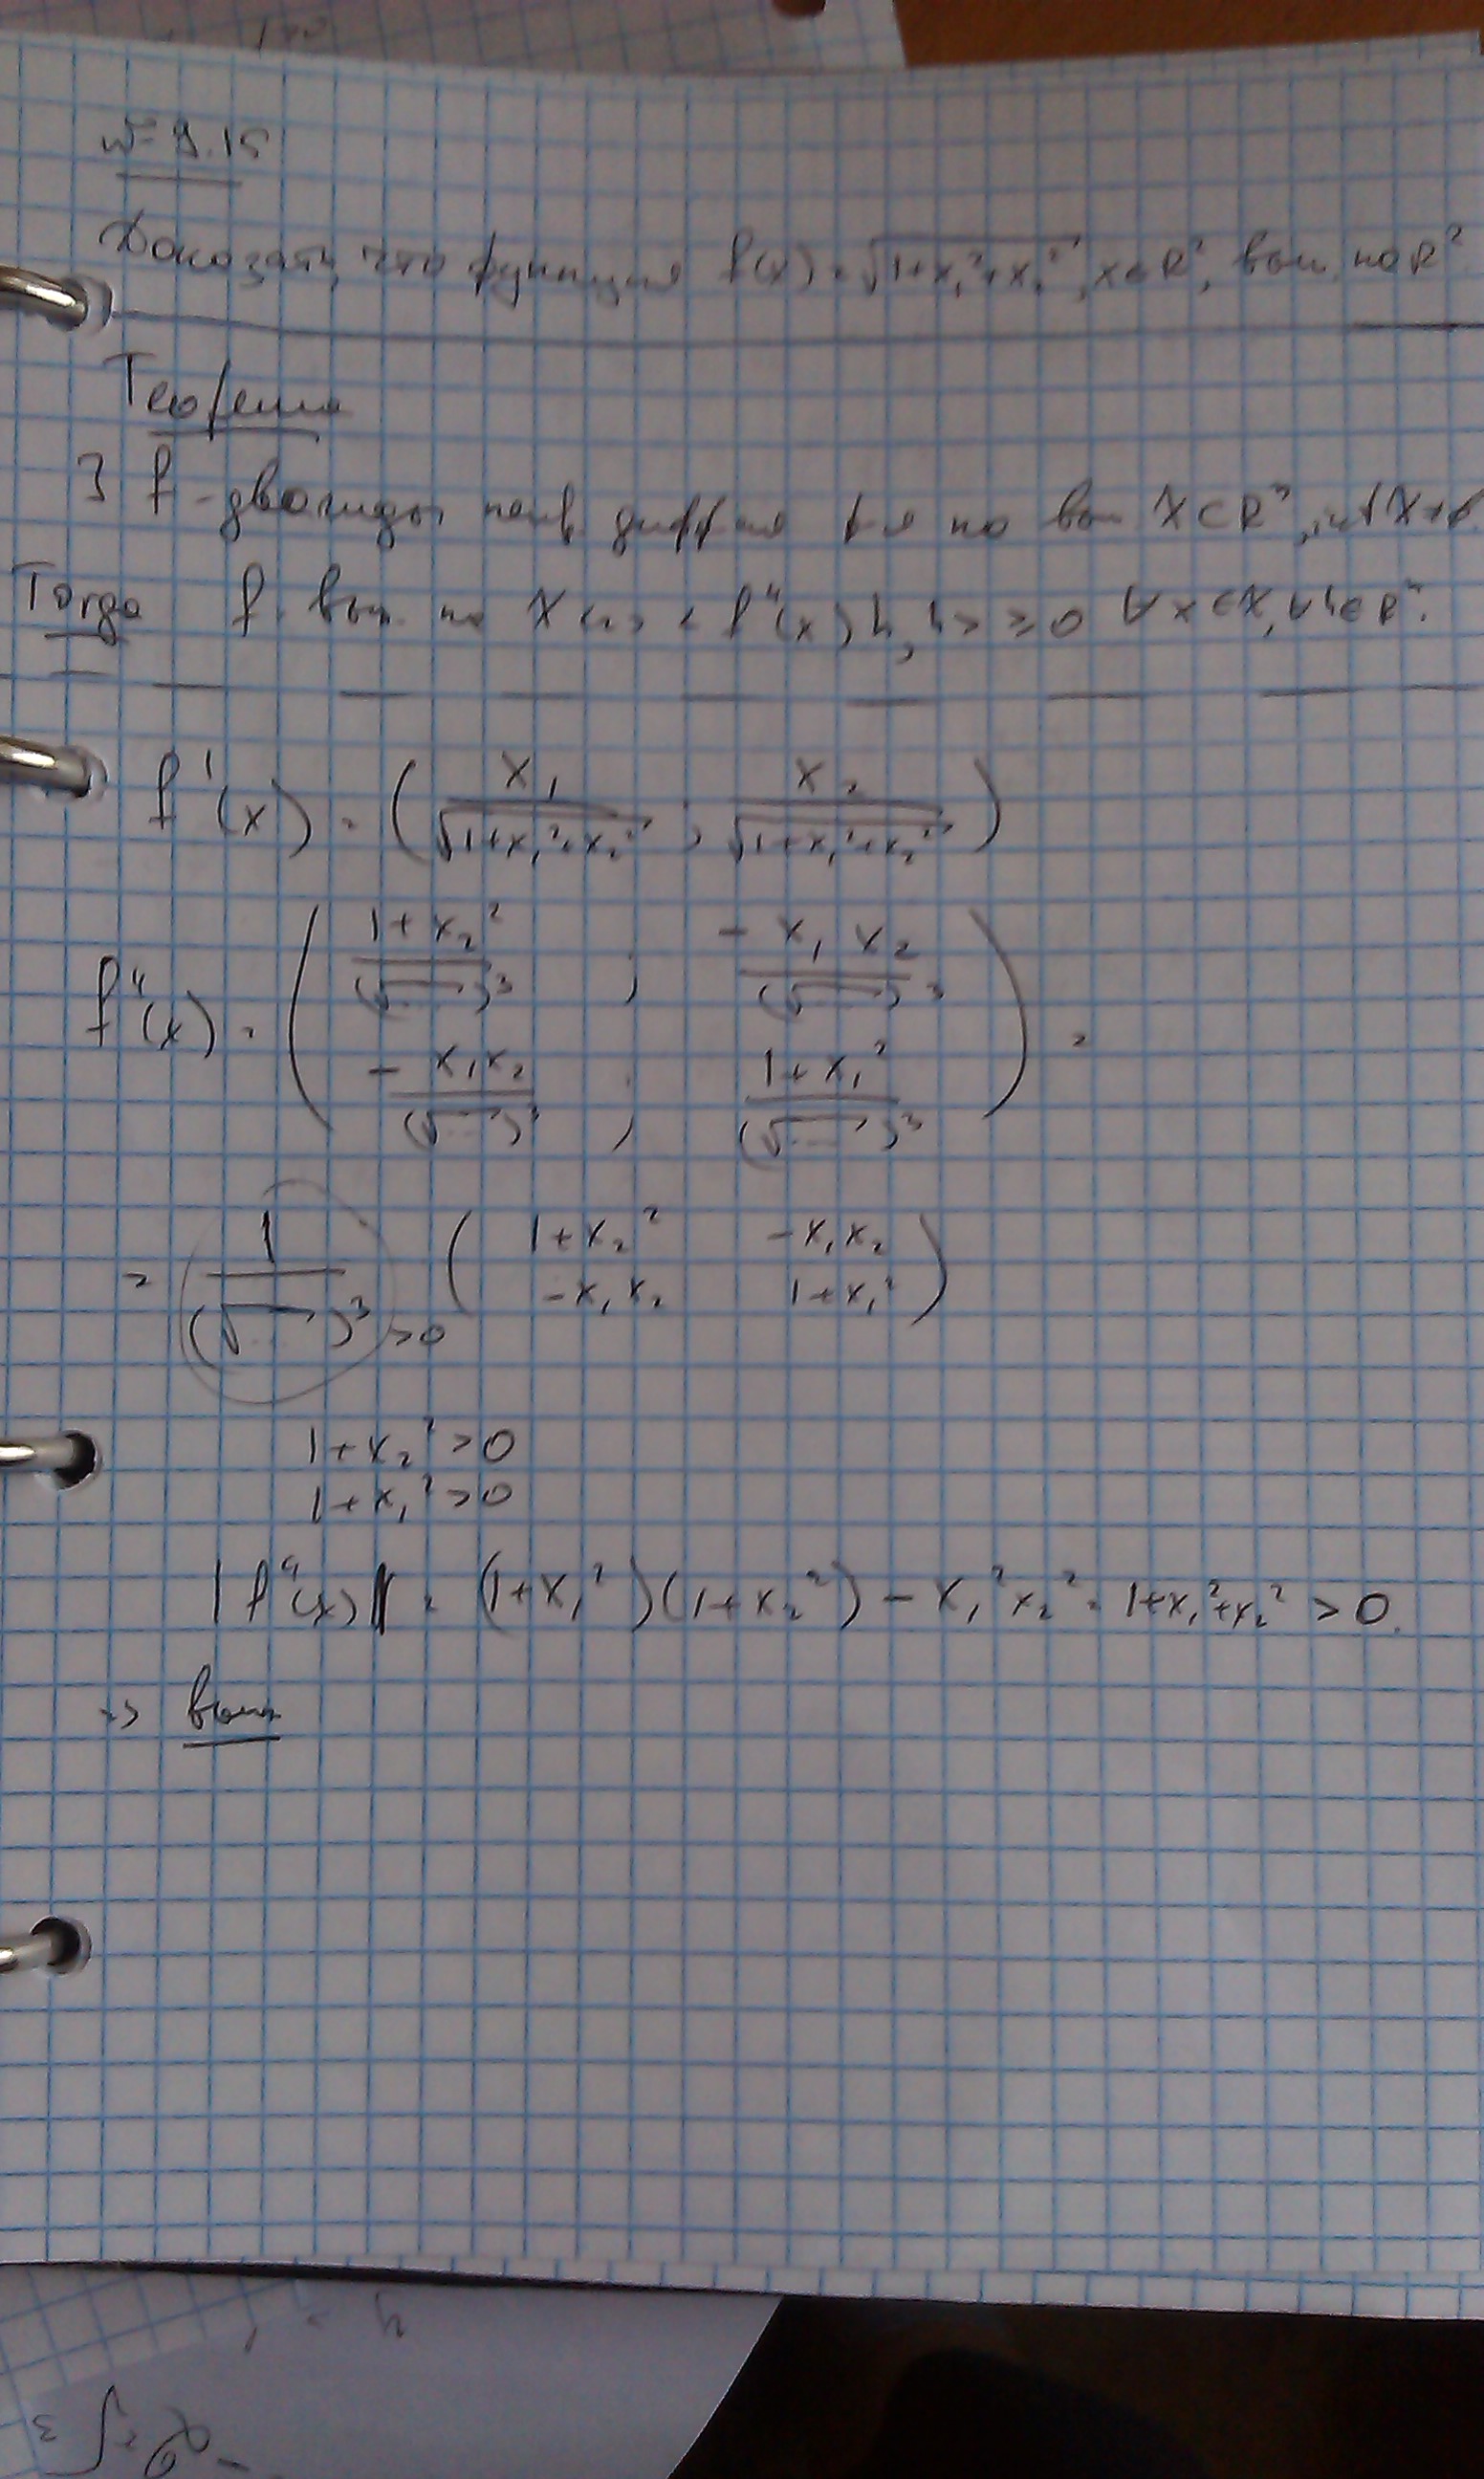 № 9.15
Доказать, что функция f(x) = √(1+x₁²+x₂²), x∈R², вып. на R²
Теорема
] f - дважды непр дифф на вып X⊂Rⁿ, int X≠∅
Тогда f вып. на X <=> <f''(x)h,h> ≥ 0 ∀x∈X, ∀h∈Rⁿ.
f'(x) = (x₁/√(1+x₁²+x₂²) ; x₂/√(1+x₁²+x₂²))
f''(x) = ( (1+x₂²)/(√...)³ ; -x₁x₂/(√...)³
-x₁x₂/(√...)³ ; (1+x₁²)/(√...)³ ) =
= 1/(√...)³ >0 ( 1+x₂² -x₁x₂
-x₁x₂ 1+x₁² )
1+x₂²>0
1+x₁²>0
|f''(x)| = (1+x₁²)(1+x₂²) - x₁²x₂² = 1+x₁²+x₂² > 0.
=> вып